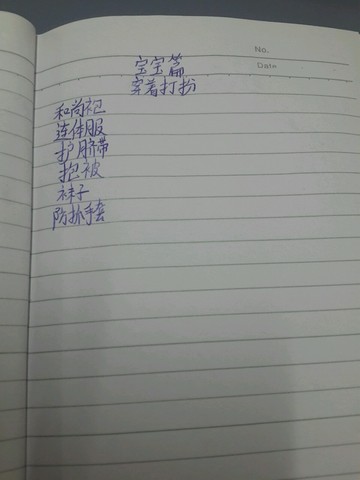 No.
Date
宝宝篇
穿着打扮
和尚袍
连体服
护脐带
抱被
袜子
防抓手套